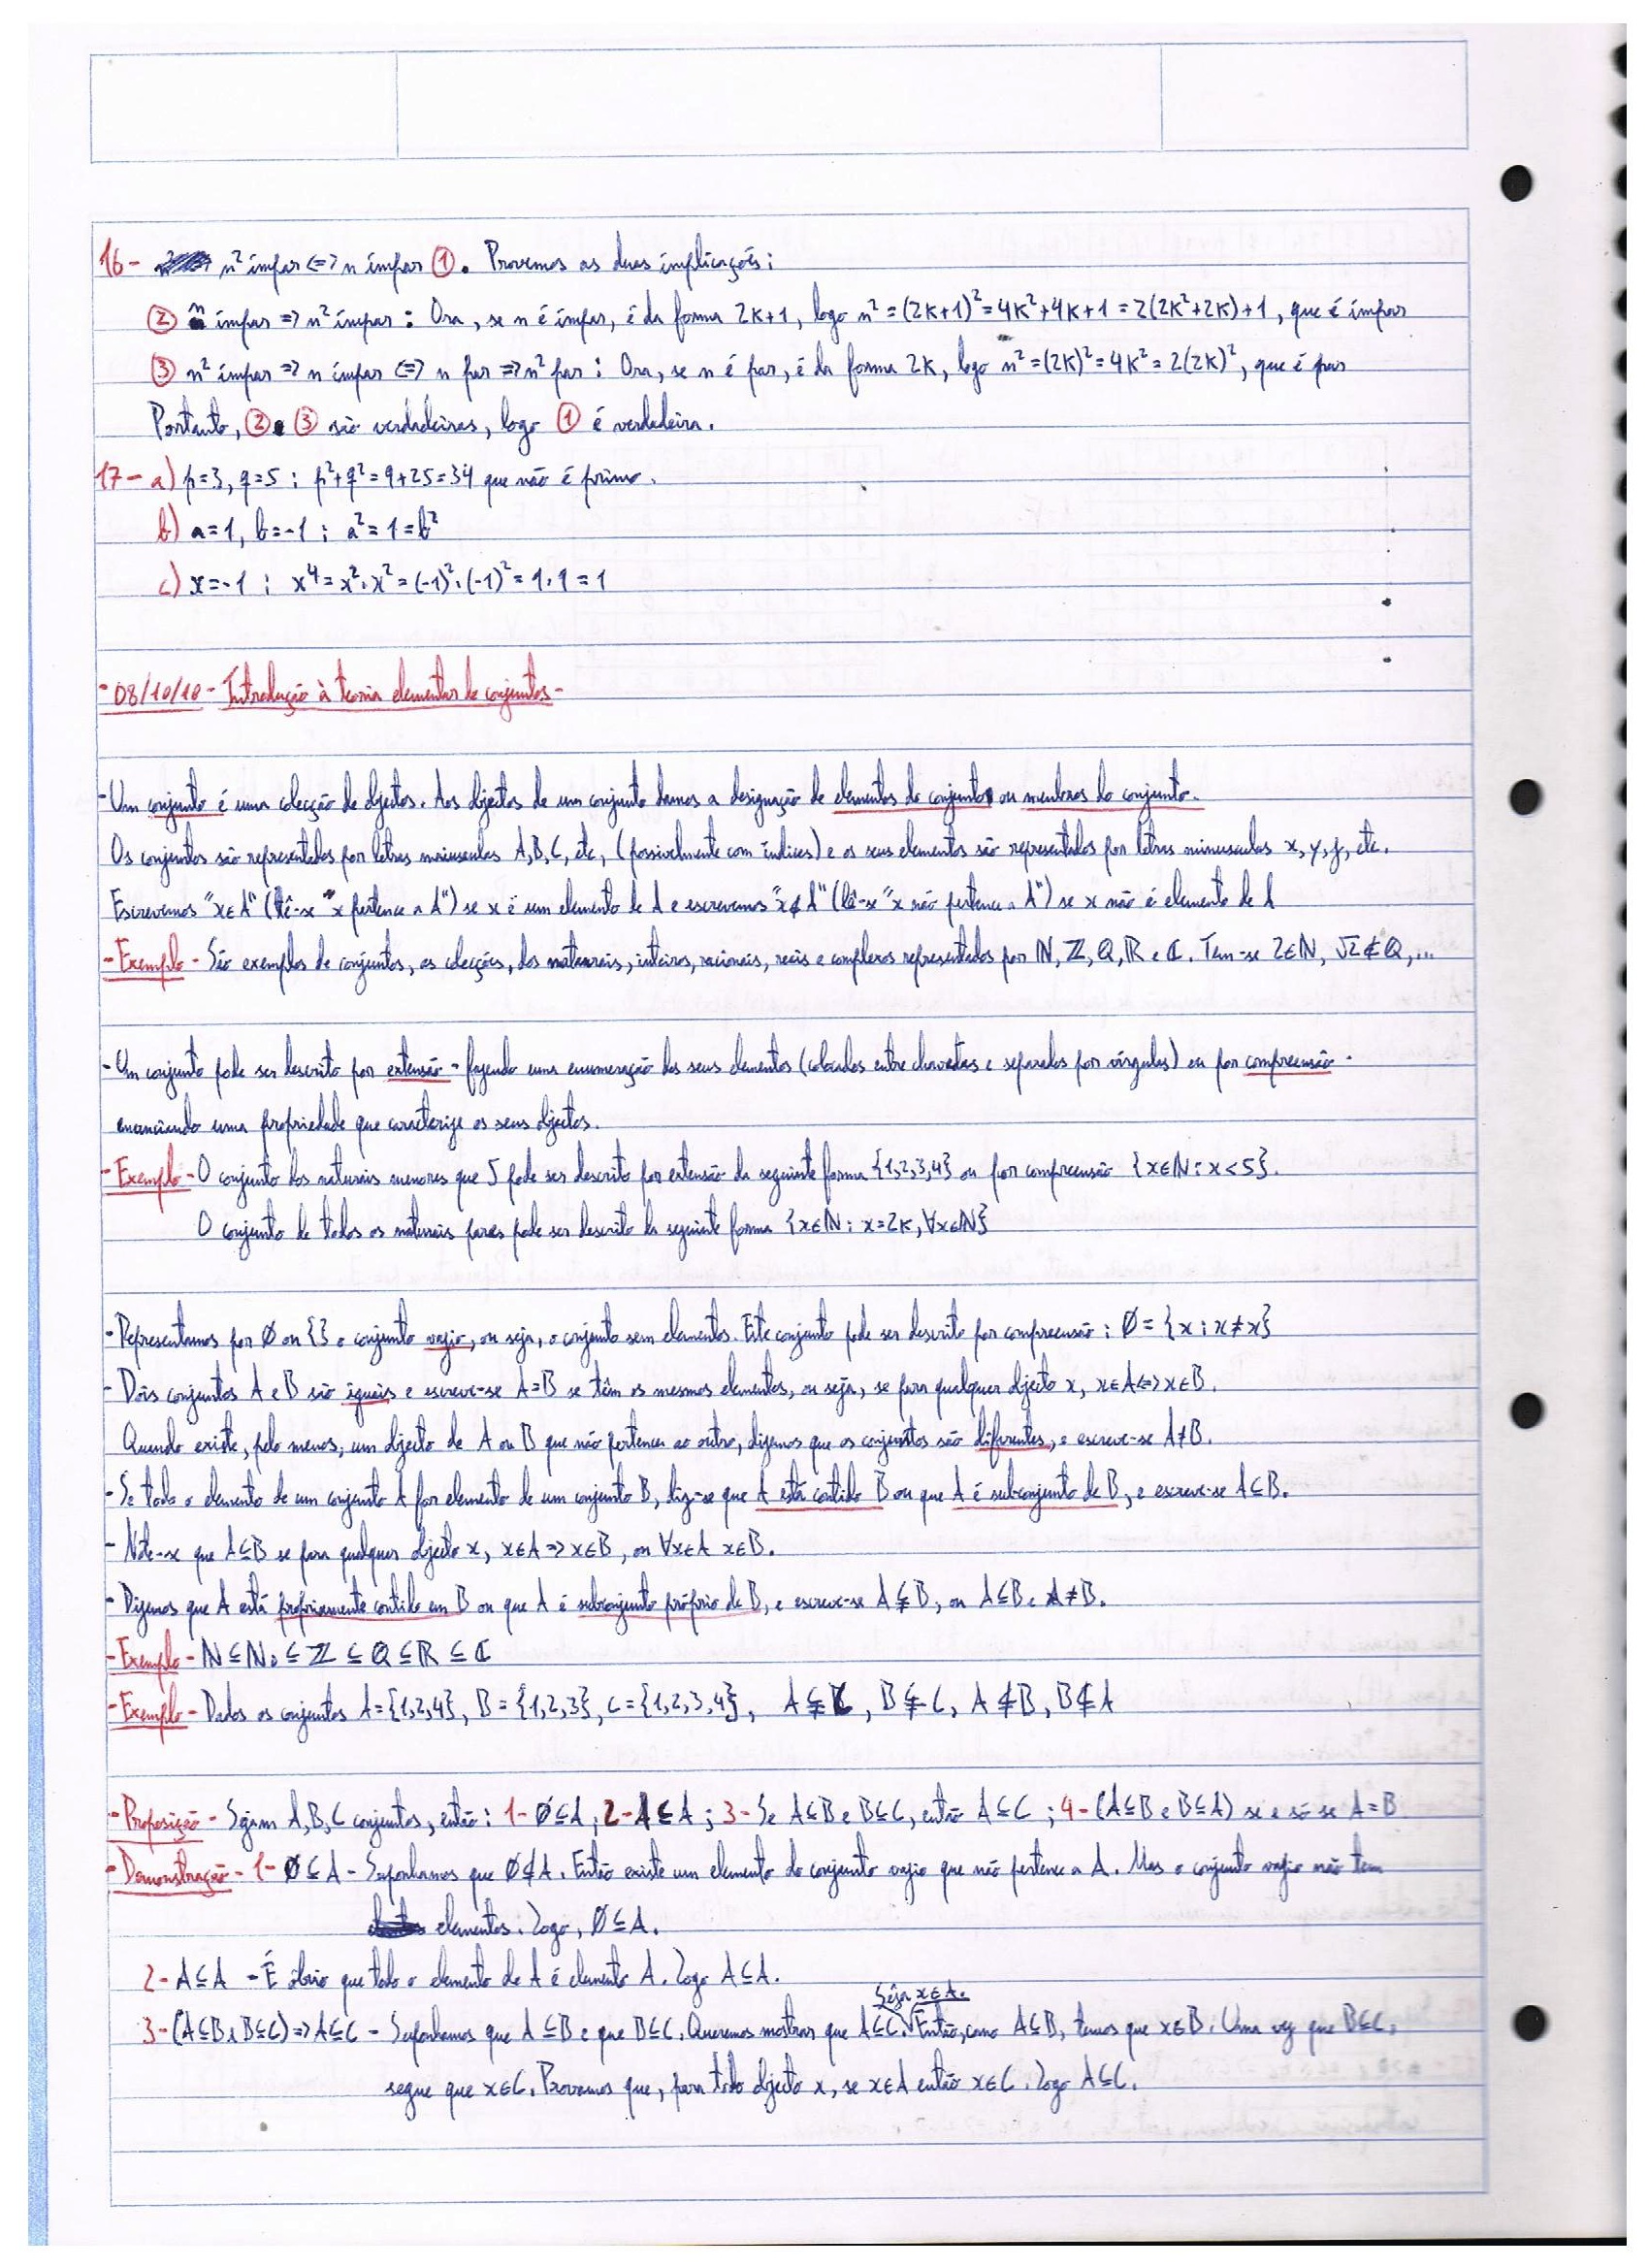 16- n² ímpar <=> n ímpar ①. Provemos as duas implicações:
② n ímpar => n² ímpar: Ora, se n é ímpar, é da forma 2K+1, logo n² = (2K+1)² = 4K²+4K+1 = 2(2K²+2K)+1, que é ímpar
③ n² ímpar => n ímpar <=> n par => n² par: Ora, se n é par, é da forma 2K, logo n² = (2K)² = 4K² = 2(2K)², que é par
Portanto, ② e ③ são verdadeiras, logo ① é verdadeira.
17- a) p=3, q=5 ; p²+q² = 9+25 = 34 que não é primo.
b) a=1, b=-1 ; a² = 1 = b²
c) x=-1 ; x⁴ = x².x² = (-1)².(-1)² = 1.1 = 1
- 08/10/10 - Introdução à teoria elementar de conjuntos -
- Um conjunto é uma colecção de objectos. Aos objectos de um conjunto damos a designação de elementos do conjunto ou membros do conjunto.
Os conjuntos são representados por letras maiusculas A, B, C, etc, (possivelmente com índices) e os seus elementos são representados por letras minusculas x, y, z, etc.
Escrevemos "x∈A" (lê-se "x pertence a A") se x é um elemento de A e escrevemos "x∉A" (lê-se "x não pertence a A") se x não é elemento de A
- Exemplo - São exemplos de conjuntos, as colecções, dos naturais, inteiros, racionais, reais e complexos representados por ℕ, ℤ, ℚ, ℝ e ℂ. Tem-se 2∈ℕ, √2∉ℚ, ...
- Um conjunto pode ser descrito por extensão - fazendo uma enumeração dos seus elementos (colocados entre chavetas e separados por vírgulas) ou por compreensão -
enunciando uma propriedade que caracterize os seus objectos.
- Exemplo - O conjunto dos naturais menores que 5 pode ser descrito por extensão da seguinte forma {1,2,3,4} ou por compreensão {x∈ℕ : x<5}.
O conjunto de todos os naturais pares pode ser descrito da seguinte forma {x∈ℕ : x=2K, ∀x∈ℕ}
- Representamos por Ø ou {} o conjunto vazio, ou seja, o conjunto sem elementos. Este conjunto pode ser descrito por compreensão : Ø = {x : x≠x}
- Dois conjuntos A e B são iguais e escreve-se A=B se têm os mesmos elementos, ou seja, se para qualquer objecto x, x∈A <=> x∈B.
Quando existe, pelo menos, um objecto de A ou B que não pertence ao outro, dizemos que os conjuntos são diferentes, e escreve-se A≠B.
- Se todo o elemento de um conjunto A for elemento de um conjunto B, diz-se que A está contido B ou que A é subconjunto de B, e escreve-se A⊆B.
- Note-se que A⊆B se para qualquer objecto x, x∈A => x∈B, ou ∀x∈A x∈B.
- Dizemos que A está propriamente contido em B ou que A é subconjunto próprio de B, e escreve-se A⊊B, ou A⊆B e A≠B.
- Exemplo - ℕ⊆ℕ₀⊆ℤ⊆ℚ⊆ℝ⊆ℂ
- Exemplo - Dados os conjuntos A={1,2,4}, B={1,2,3}, C={1,2,3,4}, A⊊C, B⊊C, A⊈B, B⊈A
- Proposição - Sejam A, B, C conjuntos, então: 1- Ø⊆A; 2- A⊆A; 3- Se A⊆B e B⊆C, então A⊆C; 4- (A⊆B e B⊆A) se e só se A=B
- Demonstração - 1- Ø⊆A - Suponhamos que Ø⊈A. Então existe um elemento do conjunto vazio que não pertence a A. Mas o conjunto vazio não tem
elementos. Logo, Ø⊆A.
2- A⊆A - É óbvio que todo o elemento de A é elemento A. Logo A⊆A.
Seja x∈A.
3- (A⊆B e B⊆C) => A⊆C - Suponhamos que A⊆B e que B⊆C. Queremos mostrar que A⊆C. Então, como A⊆B, temos que x∈B. Uma vez que B⊆C,
segue que x∈C. Provamos que, para todo objecto x, se x∈A então x∈C. Logo A⊆C.